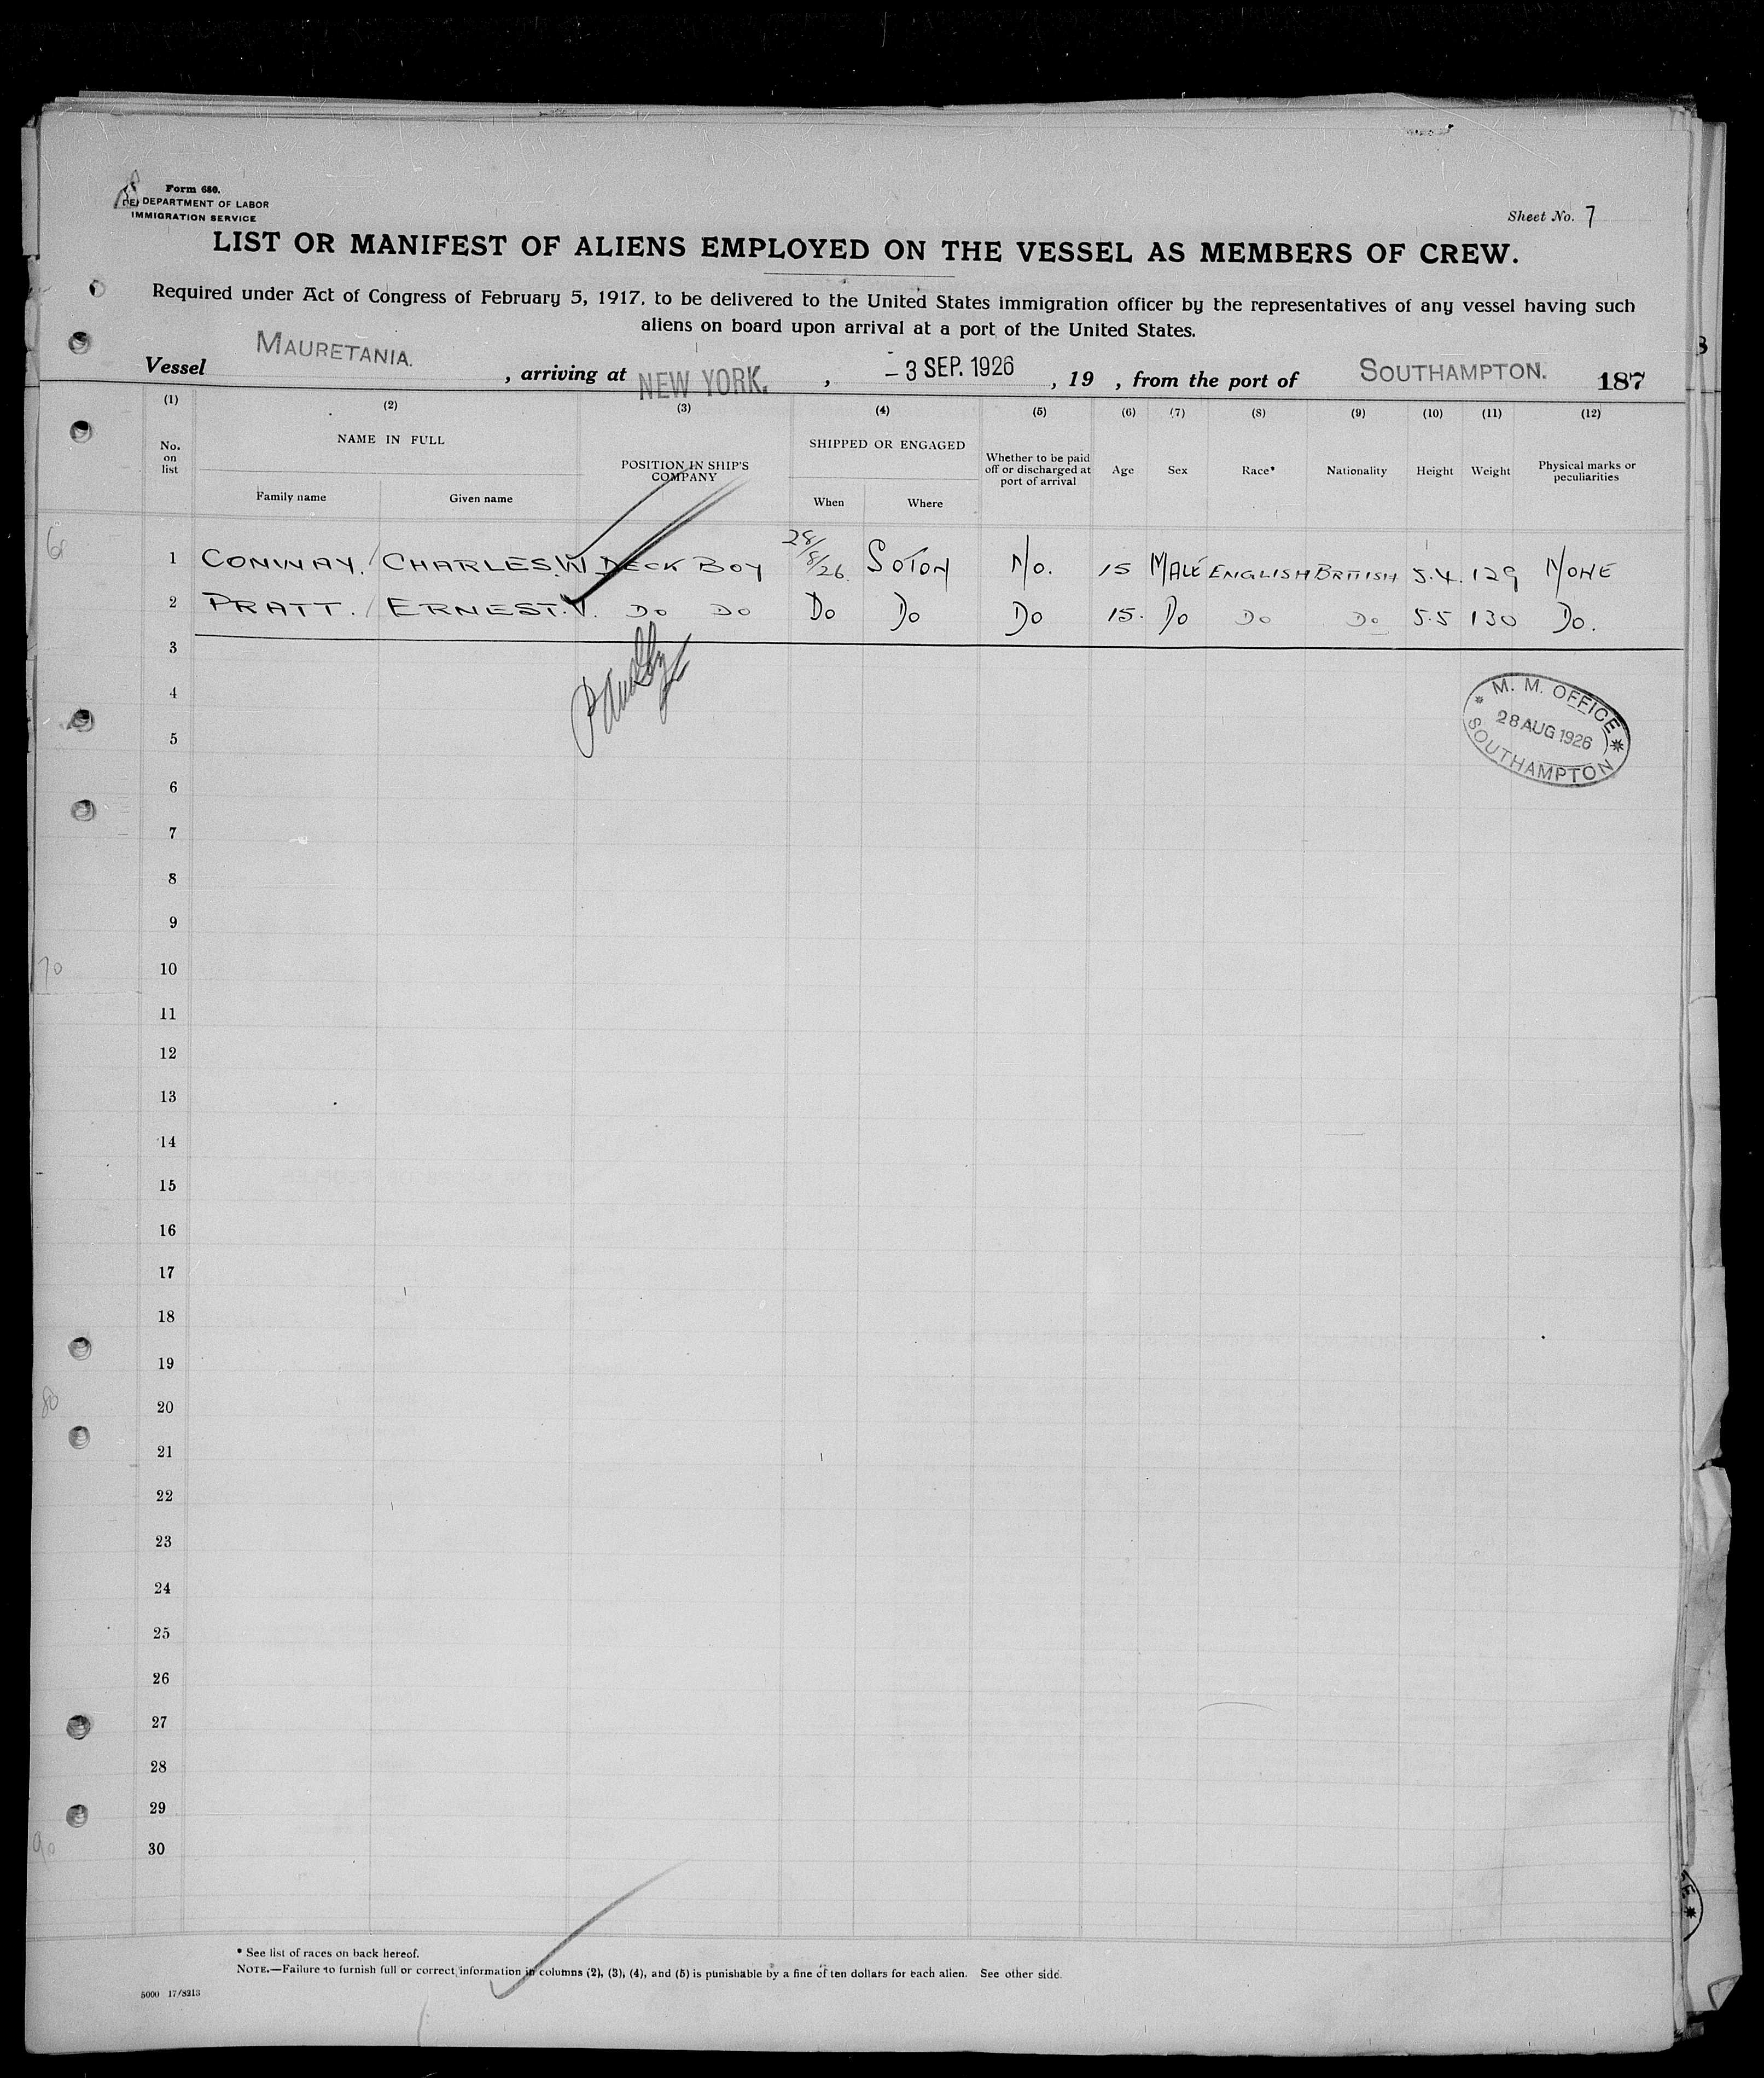 Form 680.
DEPARTMENT OF LABOR
IMMIGRATION SERVICE
Sheet No. 7
LIST OR MANIFEST OF ALIENS EMPLOYED ON THE VESSEL AS MEMBERS OF CREW.
Required under Act of Congress of February 5, 1917, to be delivered to the United States immigration officer by the representatives of any vessel having such
aliens on board upon arrival at a port of the United States.
Vessel MAURETANIA. , arriving at NEW YORK. , – 3 SEP. 1926 , 19 , from the port of SOUTHAMPTON. 187
(1) (2) (3) (4) (5) (6) (7) (8) (9) (10) (11) (12)
No. on list
NAME IN FULL
Family name Given name
POSITION IN SHIP'S COMPANY
SHIPPED OR ENGAGED
When Where
Whether to be paid off or discharged at port of arrival
Age Sex Race* Nationality Height Weight
Physical marks or peculiarities
1 CONWAY. CHARLES.W DECK BOY 28/8/26. SOTON NO. 15 MALE ENGLISH BRITISH 5.4. 129 NONE
2 PRATT. ERNEST.V. DO DO DO DO DO 15. DO DO DO 5.5 130 DO.
3
4
M. M. OFFICE
28 AUG 1926
SOUTHAMPTON
5
6
7
8
9
70
10
11
12
13
14
15
16
17
18
19
80
20
21
22
23
24
25
26
27
28
29
90
30
* See list of races on back hereof.
NOTE.—Failure to furnish full or correct information in columns (2), (3), (4), and (5) is punishable by a fine of ten dollars for each alien. See other side.
5000 17/8213